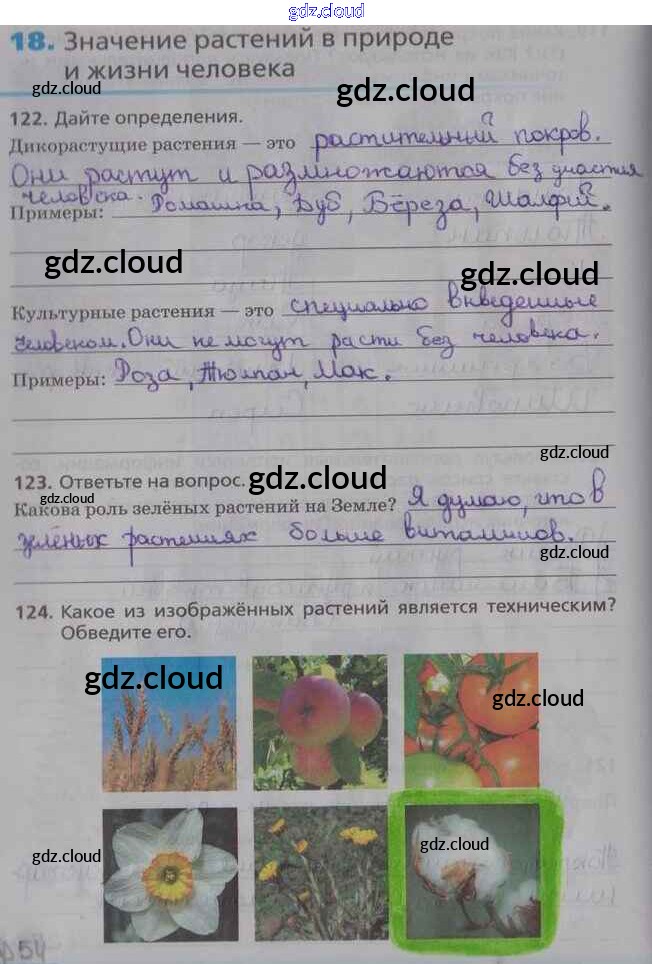 gdz.cloud
18. Значение растений в природе
и жизни человека
gdz.cloud
gdz.cloud
122. Дайте определения.
Дикорастущие растения — это растительный покров.
Они растут и размножаются без участия
человека.
Примеры: Ромашка, Дуб, Берёза, Шалфей.
gdz.cloud
gdz.cloud
Культурные растения — это специально
человеком. Они не могут расти без человека.
Примеры: Роза, Тюлпан, Мак.
gdz.cloud
123. Ответьте на вопрос.
gdz.cloud
gdz.cloud
Какова роль зелёных растений на Земле? Я думаю, что в
зелёных растениях больше витаминов.
gdz.cloud
124. Какое из изображённых растений является техническим?
Обведите его.
gdz.cloud
gdz.cloud
gdz.cloud
gdz.cloud
gdz.cloud
54